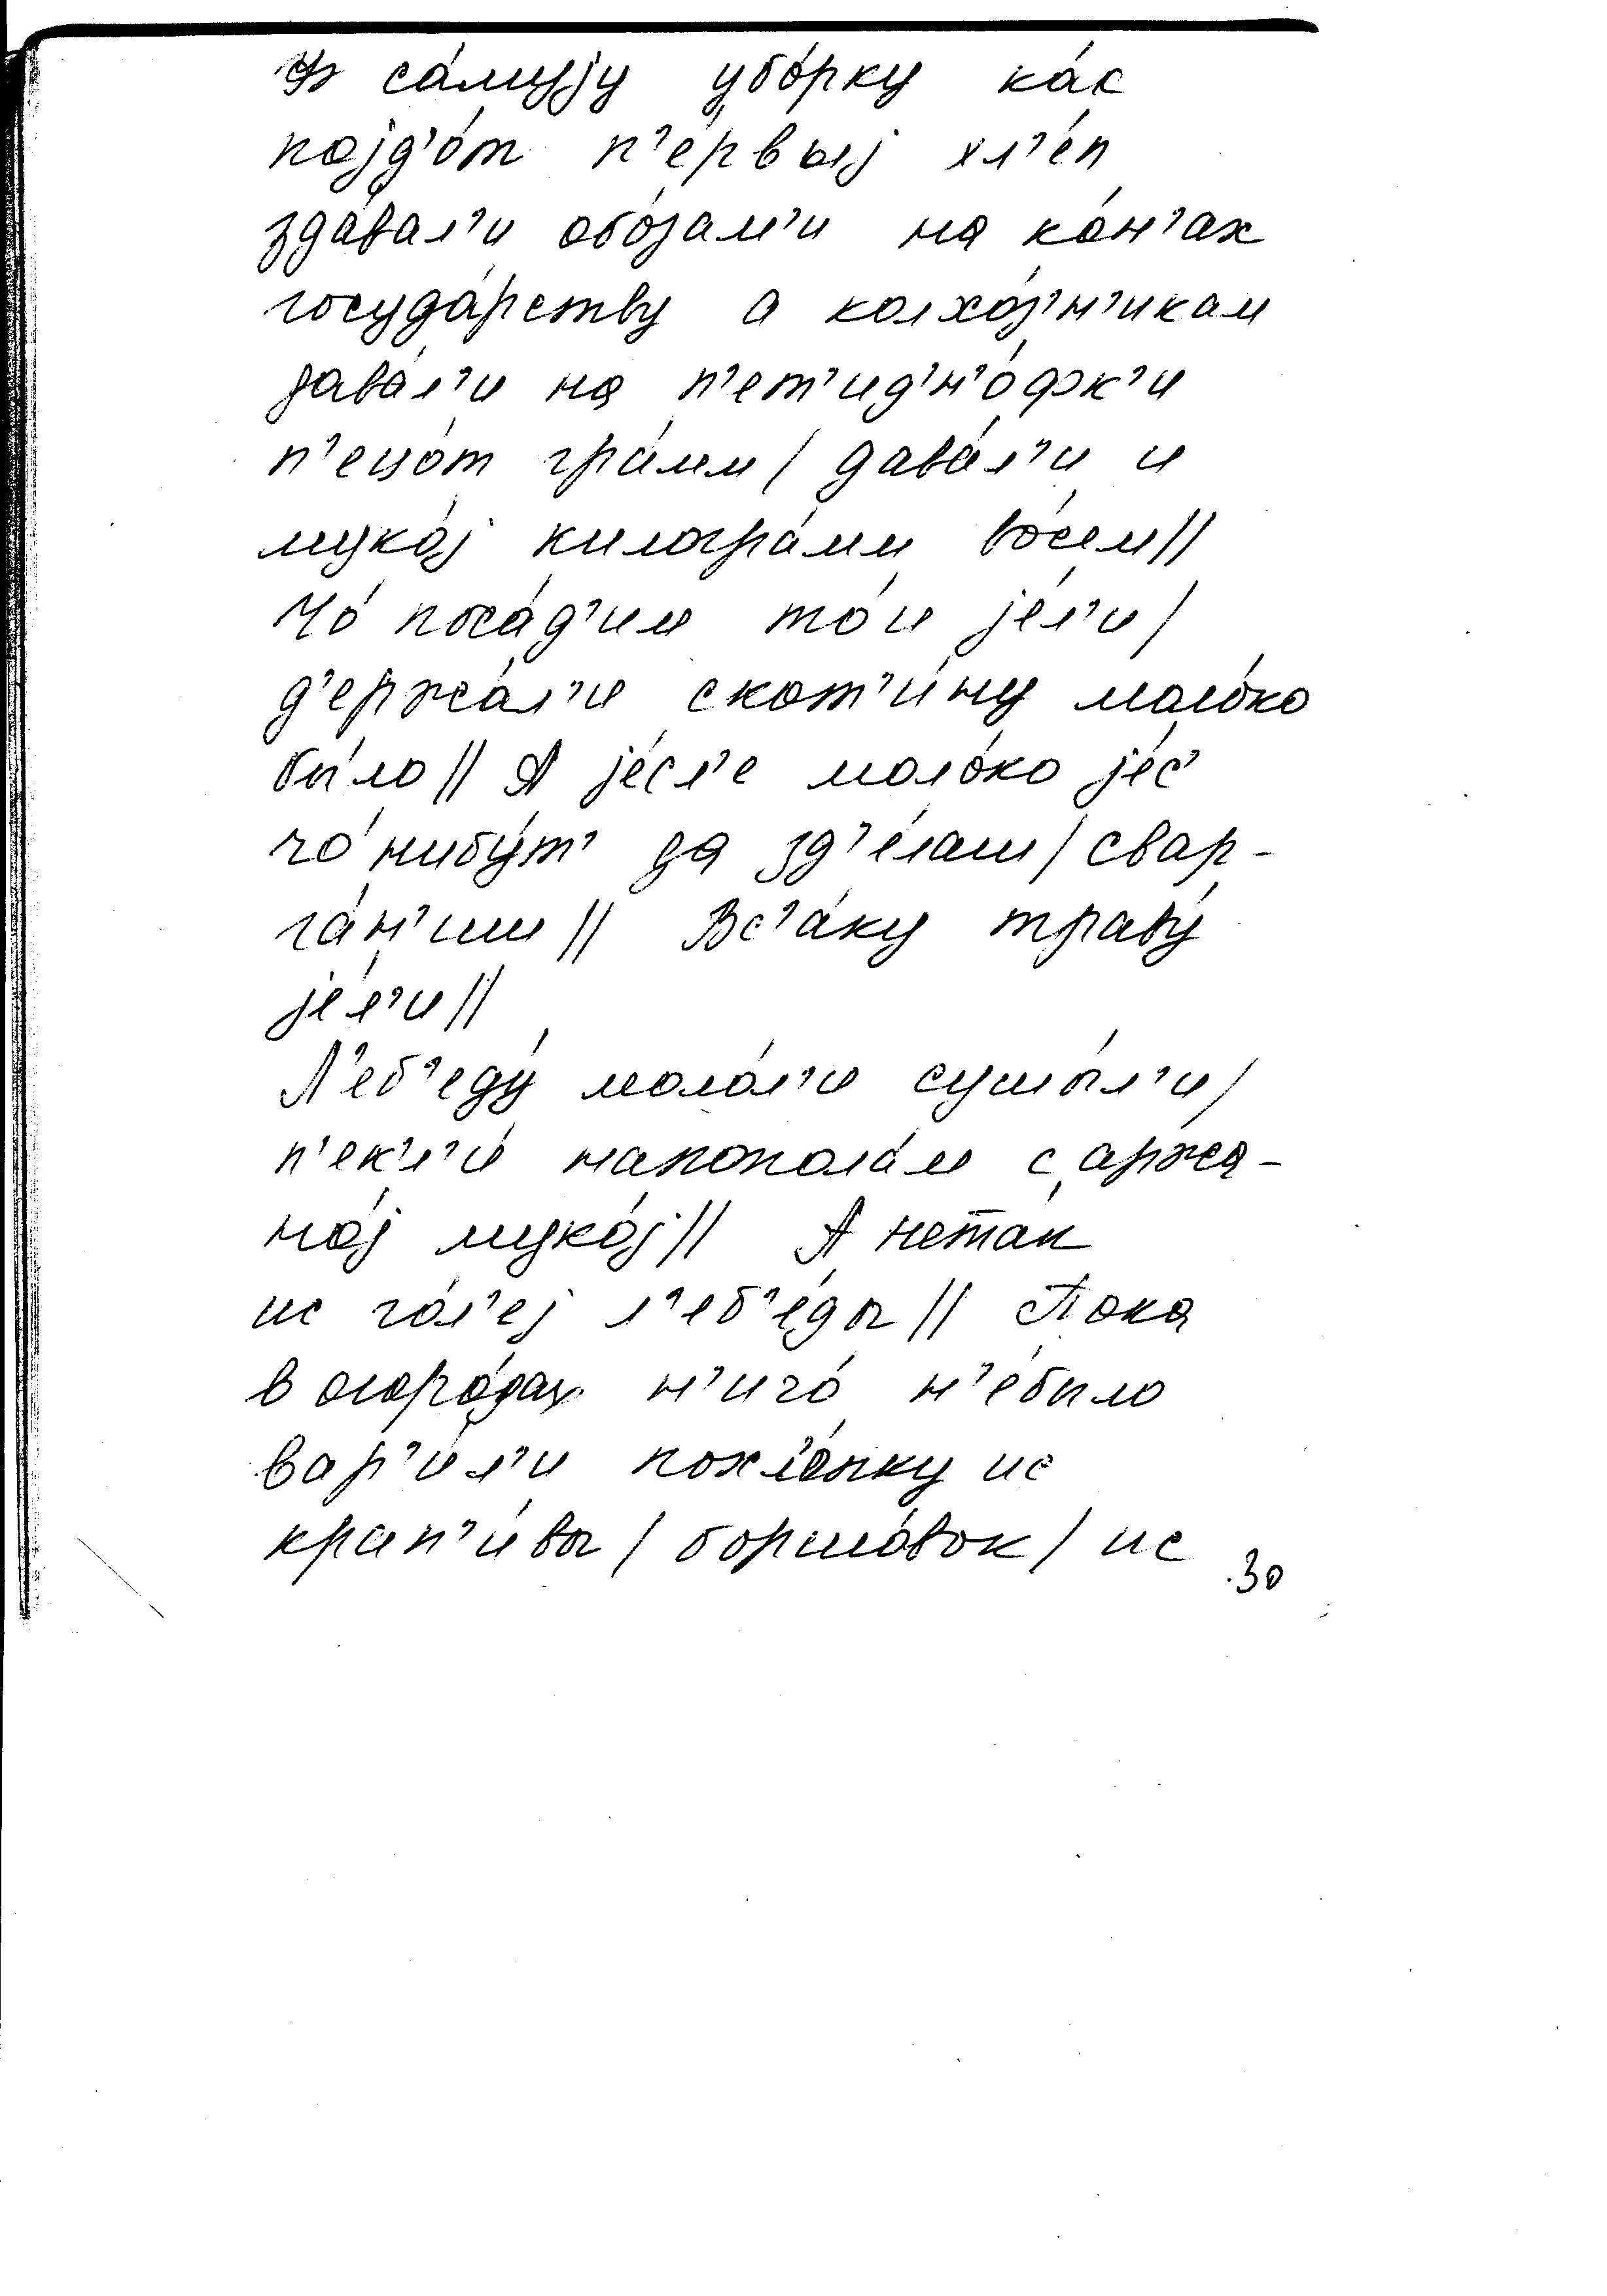 Ф са́муjу убо́рку ка́с
поjд'о́т п'е́рвыj хл'е́п
здава́л'и обо́зам'и на ко́н'ах
госуда́рству а колхо́з'н'икам
дава́л'и на п'ет'ид'н'о́фк'и
п'ецо́т гра́мм / дава́л'и и
муко́j килогра́мм во́сем //
Чо́ поса́д'им то́ и jе́л'и /
д'ержа́л'и скот'и́ну молоко́
бы́ло // А jе́сл'е молоко́ jе́с'
чо́нибу́т' да зд'е́лаш / свар-
га́н'иш // Вс'а́ку траву́
jе́л'и //
Л'еб'еду́ моло́л'и сушы́л'и /
п'екл'и́ напопола́м с аржа-
но́j муко́j // А нета́к
ис го́л'еj л'еб'еды́ // Пока
в огоро́дах н'ичо́ н'е́было
вар'и́л'и похл'о́пку ис
крап'и́вы / боршо́вок / ис
30